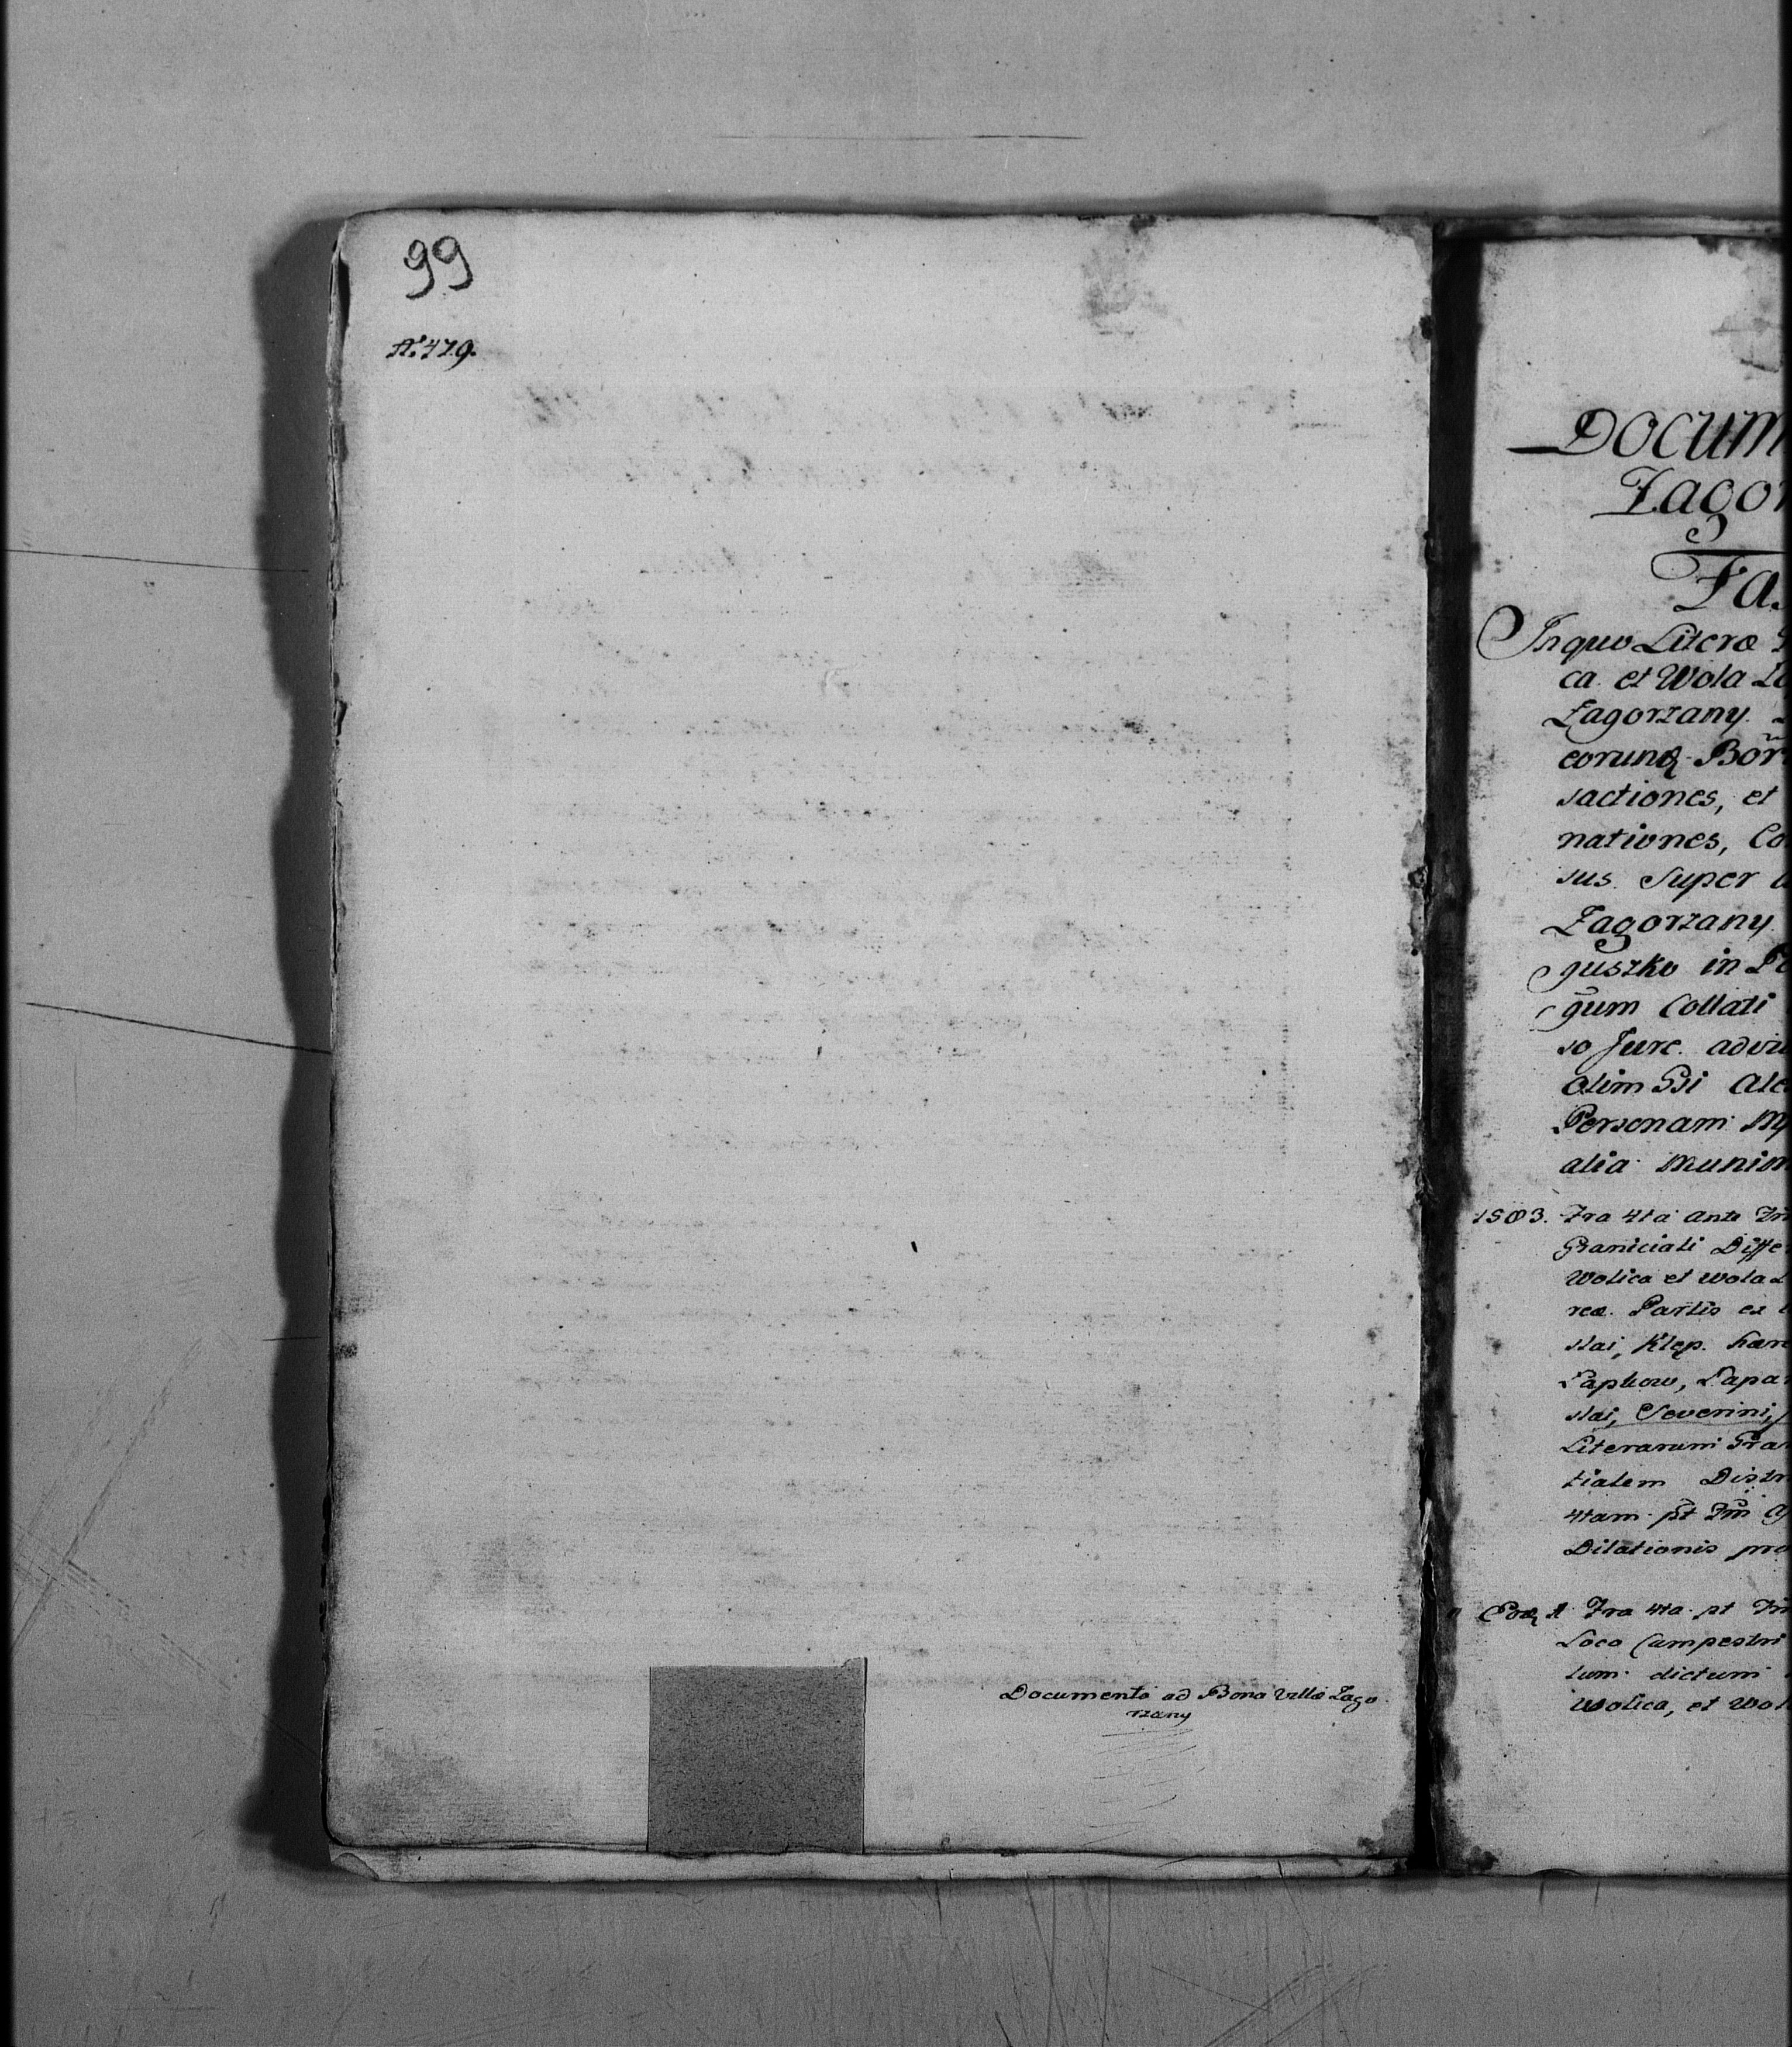 99
N° 479.
Documenta ad Bona Villæ Zago
rzany
Docum
Zagor
Fas
In quo Literæ
ca et Wola
Zagorzany.
eorunq Bor
sactiones, et
nationes, Co
sus Super
Zagorzany
guszko in
gum Collati
so Jure advi
olim Ale
Personam
alia Munim
1503. Fra 4ta ante
Graniciali Diffe
Wolica et Wola
reæ Partis ex
slai, Klęp. hære
Lapkow, Lapa
slai, Severini,
Literarum Gra
tialem Distr
4tam pt
Dilationis pro
Fra 4ta pt
Loco Campestri
tum dictum
Wolica, et Wol